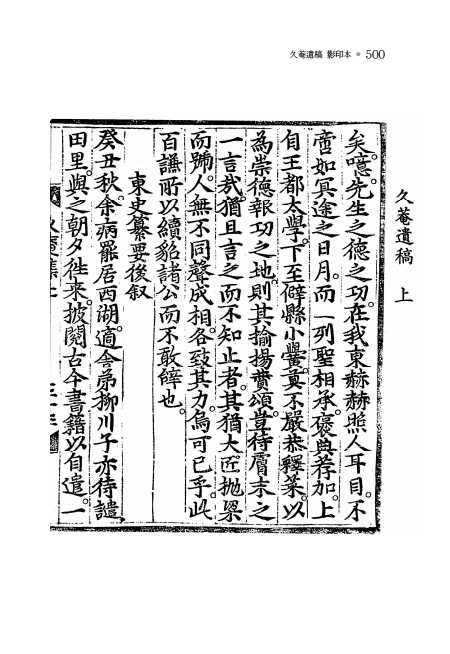 久菴遺稿 影印本 ● 500
久菴遺稿 上
矣。噫。先生之德之功。在我東赫赫照人耳目。不
啻如冥途之日月。而一列聖相承。褒典荐加。上
自王都太學。下至僻縣小黌。莫不嚴恭釋菜。以
為崇德報功之地。則其揄揚賛頌。豈待膚末之
一言哉。猶且言之而不知止者。其猶大匠抛梁
而踊。人無不同聲成相。各致其力。烏可已乎。此
百謙所以續貂諸公而不敢辭也。
東史纂要後叙
癸丑秋。余病罷居西湖。適舍弟柳川子亦待譴
田里。與之朝夕徃來。披閱古今書籍以自遣。一